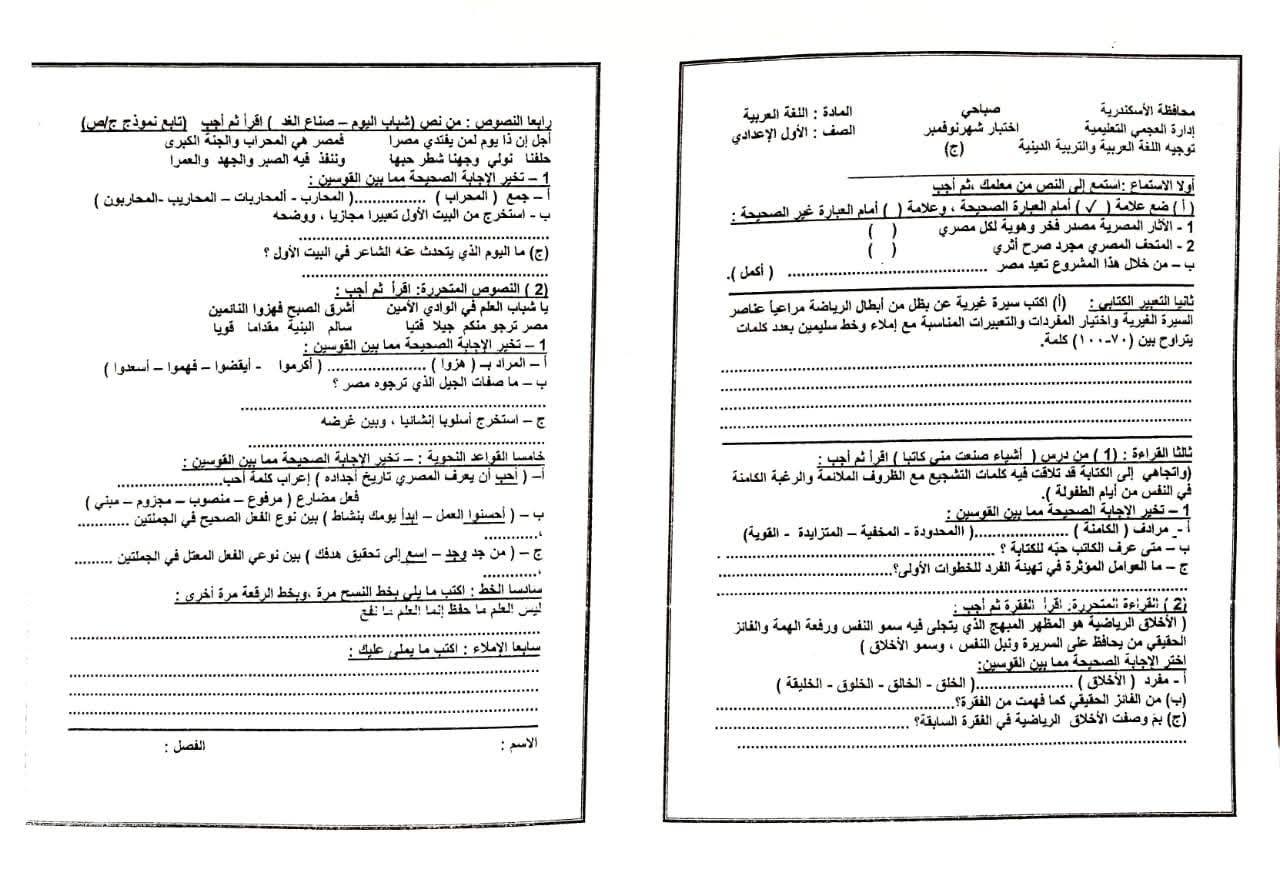 محافظة الأسكندرية صباحي المادة : اللغة العربية
إدارة العجمي التعليمية اختبار شهرنوفمبر الصف : الأول الإعدادي
توجيه اللغة العربية والتربية الدينية (ج)
أولا الاستماع :استمع إلى النص من معلمك ،ثم أجب
( أ ) ضع علامة ( ✓ ) أمام العبارة الصحيحة ، وعلامة ( ) أمام العبارة غير الصحيحة :
1 - الآثار المصرية مصدر فخر وهوية لكل مصري ( )
2 - المتحف المصري مجرد صرح أثري ( )
ب – من خلال هذا المشروع تعيد مصر ........................................ ( أكمل ).
ثانيا التعبير الكتابي : (أ) اكتب سيرة غيرية عن بطل من أبطال الرياضة مراعياً عناصر
السيرة الغيرية واختيار المفردات والتعبيرات المناسبة مع إملاء وخط سليمين بعدد كلمات
يتراوح بين (٧٠-١٠٠) كلمة.
ثالثا القراءة : (1 ) من درس ( أشياء صنعت مني كاتبا ) اقرأ ثم أجب :
(واتجاهي إلى الكتابة قد تلاقت فيه كلمات التشجيع مع الظروف الملائمة والرغبة الكامنة
في النفس من أيام الطفولة ).
1 – تخير الإجابة الصحيحة مما بين القوسين :
أ - مرادف ( الكامنة ) ....................( االمحدودة - المخفية – المتزايدة - القوية)
ب – متى عرف الكاتب حبّه للكتابة ؟ ........................................ .
ج – ما العوامل المؤثرة في تهيئة الفرد للخطوات الأولى؟....................................
(2 ) القراءة المتحررة: اقرأ الفقرة ثم أجب :
( الأخلاق الرياضية هو المظهر المبهج الذي يتجلى فيه سمو النفس ورفعة الهمة والفائز
الحقيقي من يحافظ على السريرة ونبل النفس ، وسمو الأخلاق )
اختر الإجابة الصحيحة مما بين القوسين:
أ - مفرد ( الأخلاق ) ....................( الخلق - الخالق - الخلوق - الخليقة )
(ب) من الفائز الحقيقي كما فهمت من الفقرة؟........................................
(ج) بمَ وصفت الأخلاق الرياضية في الفقرة السابقة؟ ........................................
رابعا النصوص : من نص (شباب اليوم – صناع الغد ) اقرأ ثم أجب (تابع نموذج ج/ص)
أجل إن ذا يوم لمن يفتدي مصرا فمصر هي المحراب والجنة الكبرى
حلفنا نولي وجهنا شطر حبها وننفذ فيه الصبر والجهد والعمرا
1 – تخير الإجابة الصحيحة مما بين القوسين :
أ – جمع ( المحراب ) ................( المحارب - ألمحاربات – المحاريب -المحاربون )
ب - استخرج من البيت الأول تعبيرا مجازيا ، ووضحه
(ج) ما اليوم الذي يتحدث عنه الشاعر في البيت الأول ؟
(2 ) النصوص المتحررة: اقرأ ثم أجب :
يا شباب العلم في الوادي الأمين أشرق الصبح فهزوا النائمين
مصر ترجو منكم جيلا فتيا سالم البنية مقداما قويا
1 – تخير الإجابة الصحيحة مما بين القوسين :
أ – المراد بـ ( هزوا ) ...................... ( أكرموا - أيقضوا – فهموا – أسعدوا )
ب – ما صفات الجيل الذي ترجوه مصر ؟
ج – استخرج أسلوبا إنشائيا ، وبين غرضه
خامسا القواعد النحوية : – تخير الإجابة الصحيحة مما بين القوسين :
أ– ( أحب أن يعرف المصري تاريخ أجداده ) إعراب كلمة أحب.....................
فعل مضارع ( مرفوع – منصوب – مجزوم – مبني )
ب – ( أحسنوا العمل – إبدأ يومك بنشاط ) بين نوع الفعل الصحيح في الجملتين ............
،............
ج – ( من جد وجد – اسع إلى تحقيق هدفك ) بين نوعي الفعل المعتل في الجملتين .........
،............
سادسا الخط : اكتب ما يلي بخط النسخ مرة ،وبخط الرقعة مرة أخرى :
ليس العلم ما حفظ إنما العلم ما نفع
سابعا الإملاء : اكتب ما يملى عليك :
الاسم : الفصل :